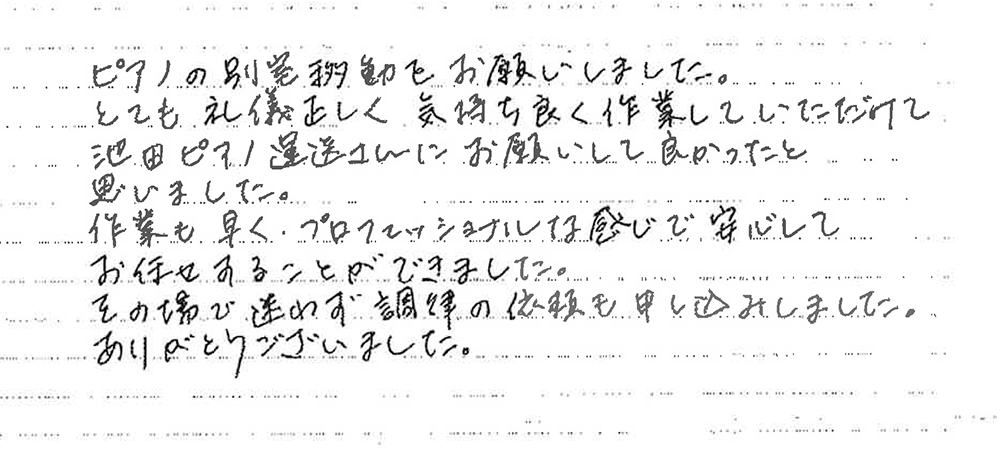 ピアノの別室移動をお願いしました。
とても礼儀正しく気持ち良く作業していただけて
池田ピアノ運送さんにお願いして良かったと
思いました。
作業も早く、プロフェッショナルな感じで安心して
お任せすることができました。
その場で迷わず調律の依頼も申し込みしました。
ありがとうございました。